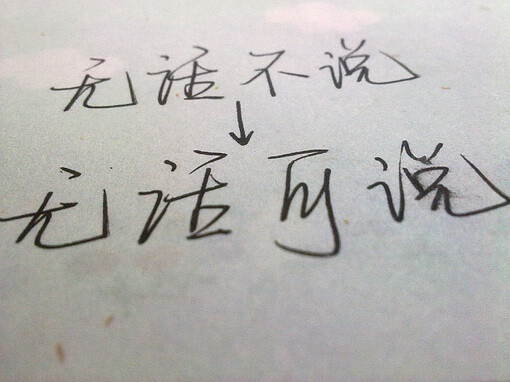 无话不说
↓
无话可说